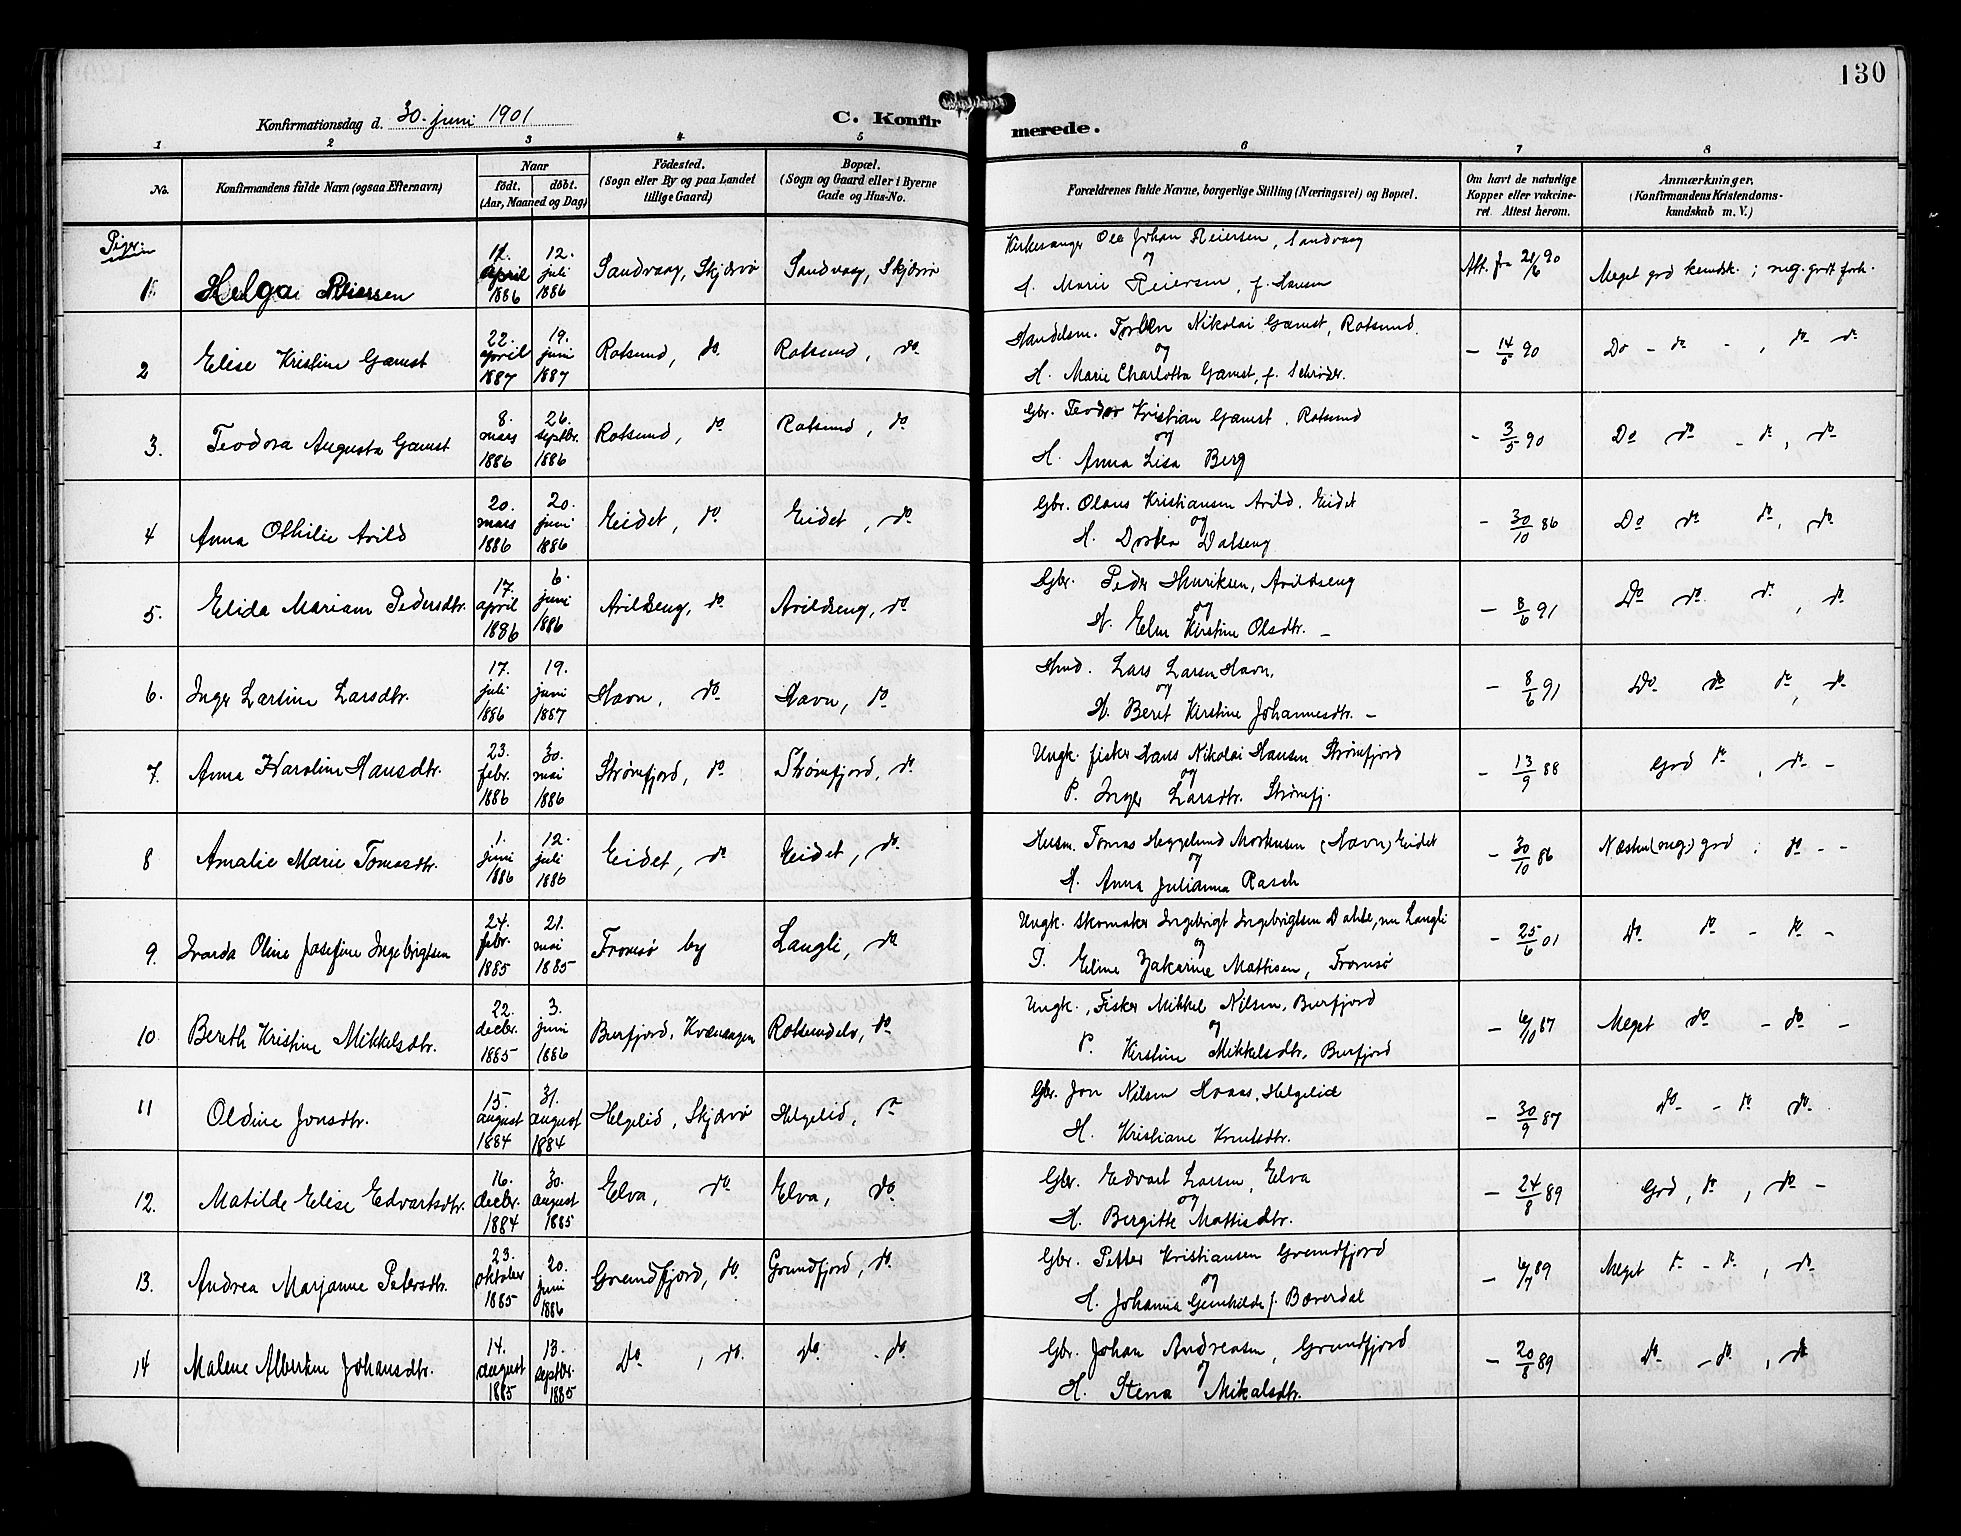 130
Konfirmationsdag d. 30. juni 1901
C. Konfirmerede.
1 2 3 4 5 6 7 8
No. Konfirmandens fulde Navn (ogsaa Efternavn) Naar født. døbt. (Aar, Maaned og Dag) Födested. (Sogn eller By og paa Landet tillige Gaard) Bopæl. (Sogn og Gaard eller i Byerne Gade og Hus-No. Forældrenes fulde Navne, borgerlige Stilling (Næringsvei) og Bopæl. Om havt de naturlige Kopper eller vakcineret. Attest herom. Anmærkninger, (Konfirmandens Kristendomskundskab m. V.)
Piger:
1. Helga Reiersen 17. april 1886 12. juli 1886 Sandvaag, Skjærvø Sandvaag, Skjærvø Kirkesanger Ole Johan Reiersen, Sandvaag og H. Marie Reiersen, f. Hansen Att. fra 21/6 90 Meget god kundsk.; meg. godt forh.
2 Elise Kristine Gamst 22. april 1887 19. juni 1887 Rotsund, do. Rotsund, do. Handelsm. Nikolai Gamst, Rotsund. og H. Marie Charlotta Gamst, f. Schrøder. - 14/5 90 Do - do - , do do
3. Teodora Augusta Gamst 8. mars 1886 26. septbr. 1886 Rotsund, do Rotsund, do Gbr. Teodor Kristian Gamst, Rotsund og H. Anna Lisa Berg - 3/5 90 Do do - do, do
4 Anna Othilie Avild 20. mars 1886 20. juni 1886 Eidet, do Eidet, do Gbr. Olaus Kristiansen Avild, Eidet og H. Dortea Dalseng - 30/10 86 Do do do, do
5. Elida Mariam Pedersdtr. 17. april 1886 6. juni 1886 Avildseng, do Avildseng, do Gbr. Peder Henriksen, Avildseng og H. Elen Kirstine Olsdtr. - - 8/6 91 Do do do, do
6. Inger Larsine Larsdtr. 17. juli 1886 19. juni 1887 Havn, do Havn, do Lars Larsen Havn, og H. Beret Kirstine Johannesdtr. - - 8/6 91 Do do do, do
7. Anna Karoline Hansdtr. 23. febr. 1886 30. mai 1886 Strømfjord, do Strømfjord, do Ungk. fisker Hans Nikolai Hansen Strømfjord og P. Inger Larsdtr. Strømfj. - 13/9 88 God do, do -
8 Amalie Marie Tomasdtr. 1. juni 1886 12. juli 1886 Eidet, do Eidet, do Husm. Tomas Heggelund Mortensen (Havn) Eidet og H. Anna Julianna Rasch - 30/10 86 Næsten (meg.) god ; do - -
9. Oline Josefine Ingebrigtsen 24. febr. 1885 21. mai 1885 Tromsø by Langli, do Ungk. skomaker Ingebrigt Ingebrigtsen Dahle, nu Langli og P. Eline Zakarine Mattisen, Tromsø - 25/6 01 do do - do -
10 Bereth Kristine Mikkelsdtr. 22. decbr. 1885 3. juni 1886 Burfjord, Kvænangen Rotsundelv, do Ungk., Fisker Mikkel Nilsen, Burfjord og P. Kirstine Mikkelsdtr, Burfjord - 6/10 87 Meget do - do -
11 Oldine Jonsdtr. 15. august 1884 31. august 1884 Helgelid, Skjærvø Helgelid, do Gbr. Jon Nilsen Hoaas, Helgelid H. Kristiane Knutsdtr. - 30/9 87 do - do do
12. Matilde Elise Edvartsdtr. 16. decbr. 1884 30. august 1885 Elva, do Elva, do Gbr. Edvart Larsen, Elva og H. Bergitte Mattisdtr. - 24/8 89 God, do, do -
13. Andrea Marjanne Petersdtr. 23. oktober 1885 20. juni 1886 Grundfjord, do. Grundfjord, do. Gbr. Petter Kristiansen Grundfjord og H. Johanna Gunhilde f. Bæverdal - 6/7 89 Meget do - do, do
14 Malene Albertine Johansdtr. 14. august 1885 13. septbr. 1885 Do , do. do. - do. Gbr. Johan Andreasen, Grundfjord og H. Stena Mikalsdtr. - 20/8 89 do - do, do